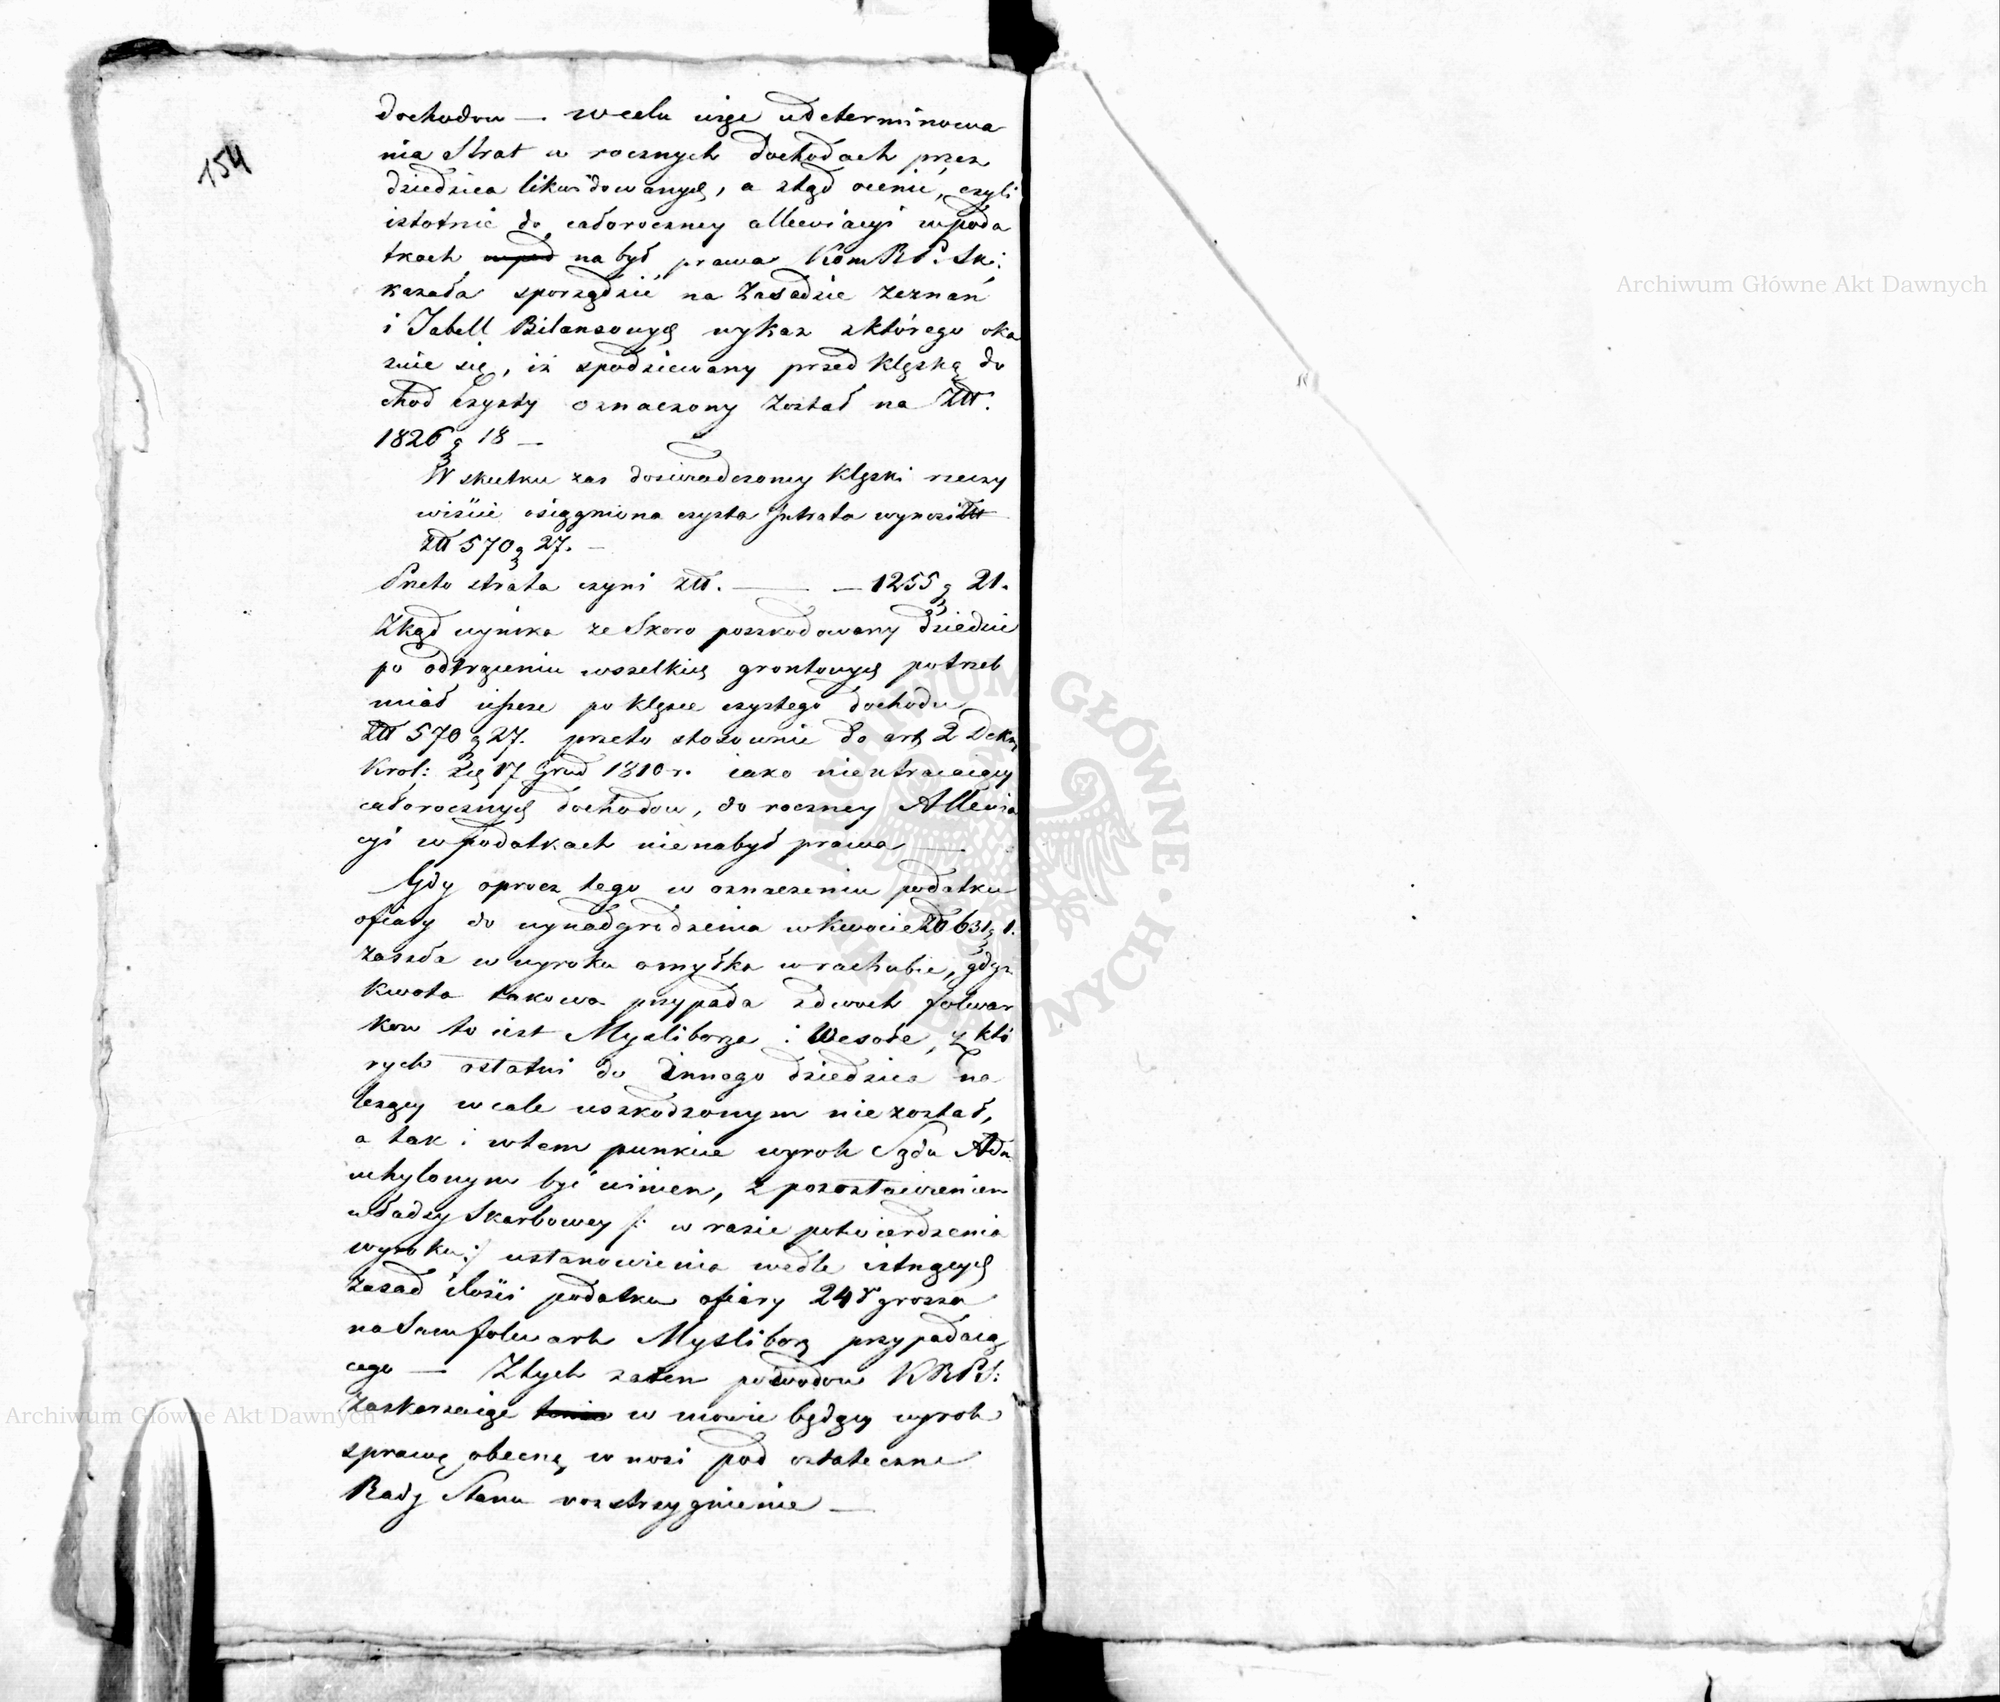 154
dochodow — w celu więc udeterminowa
nia Strat w rocznych dochodach przez
dziedzica likwidowanych, a ztąd ocenić, czyli
istotnie do całoroczney allewiacyi w poda
tkach nabył prawa Kom R P: Sk:
kazała sporządzić na Zasadzie zeznań
i Tabell Bilansowych wykaz z którego oka
zuie się, iż spodziewany przed klęską do
chod czysty oznaczony został na Złtt.
1826 g 18 —
W skutku zas doswiadczoney klęski rzeczy
wiście osiągniona czysta Jntrata wynosi
złtt 570 g 27. —
Przeto strata czyni złtt. — — 1255 g 21.
Zkąd wynika ze Skoro poszkodowany dziedzic
po odtrąceniu wszelkich grontowych potrzeb
miał ieszcze po klęsce czystego dochodu
złtt 570 g 27. przeto stosownie do art 2 Dekr
Krol: z 17 Grud 1810 r. iako nieutracaiący
całorocznych dochodow, do roczney Allewia
cyi w podatkach nienabył prawa —
Gdy oprocz tego w oznaczeniu podatku
ofiary do wynadgrodzenia w kwocie zł 631 g 1.
zaszła w wyroku omyłka w rachubie, gdyz
kwota takowa przypada z dwoch folwar
kow to iest Mysliborza i Wesołe, z któ
rych ostatni do Innego dziedzica na
leżący wcale uszkodzonym nie został,
a tak i w tem punkcie wyrok Sądu Adm
uchylonym być winien, z pozostawieniem
władzy Skarbowey /: w razie potwierdzenia
wyroku :/ ustanowienia wedle istnących
zasad ilości podatku ofiary 24 grosza
na Sam folwark Mysliborz przypadaią
cego — Z tych zatem powodow K R P S:
zaskarzaiąc w mowie będący wyrok
sprawę obecną wnosi pod ostateczne
Rady Stanu rozstrzygnienie —
Archiwum Główne Akt Dawnych
Archiwum Główne Akt Dawnych
ARCHIWUM GŁÓWNE AKT DAWNYCH